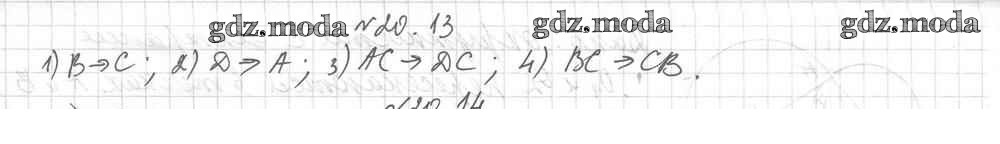 gdz.moda №20.13 gdz.moda gdz.moda
1) B→C; 2) D→A; 3) AC→DC; 4) BC→CB.
№20.14